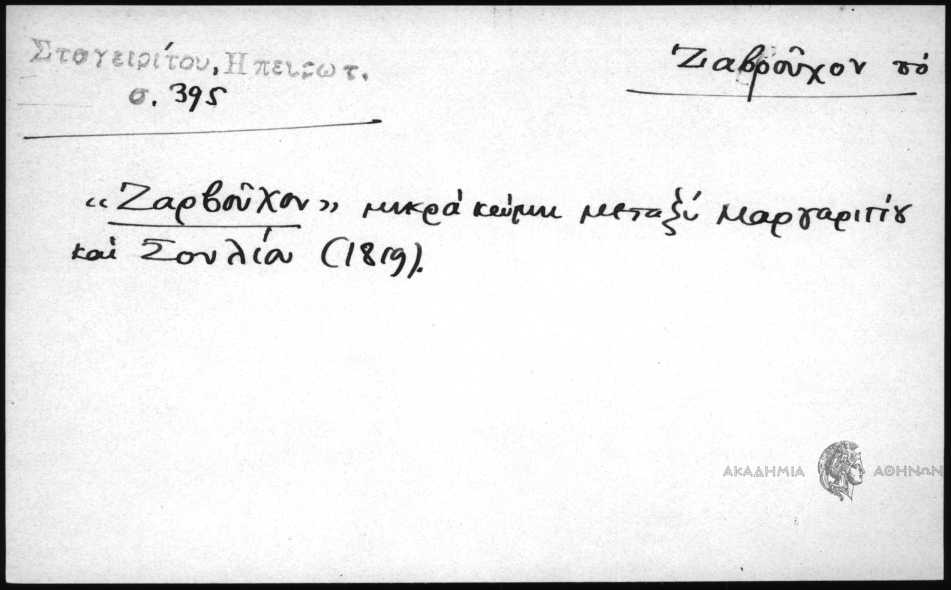 Σταγειρίτου, Ηπειρωτ.
σ. 395
Ζαβροῦχον τό
"Ζαρβοῦχον" μικρά κώμη μεταξύ Μαργαριτίου
καί Σουλίου (1819).
ΑΚΑΔΗΜΙΑ ΑΘΗΝΩΝ